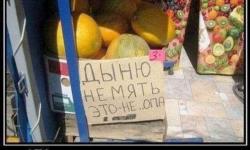 ДЫНЮ
НЕ МЯТЬ
ЭТО-НЕ..ОПА